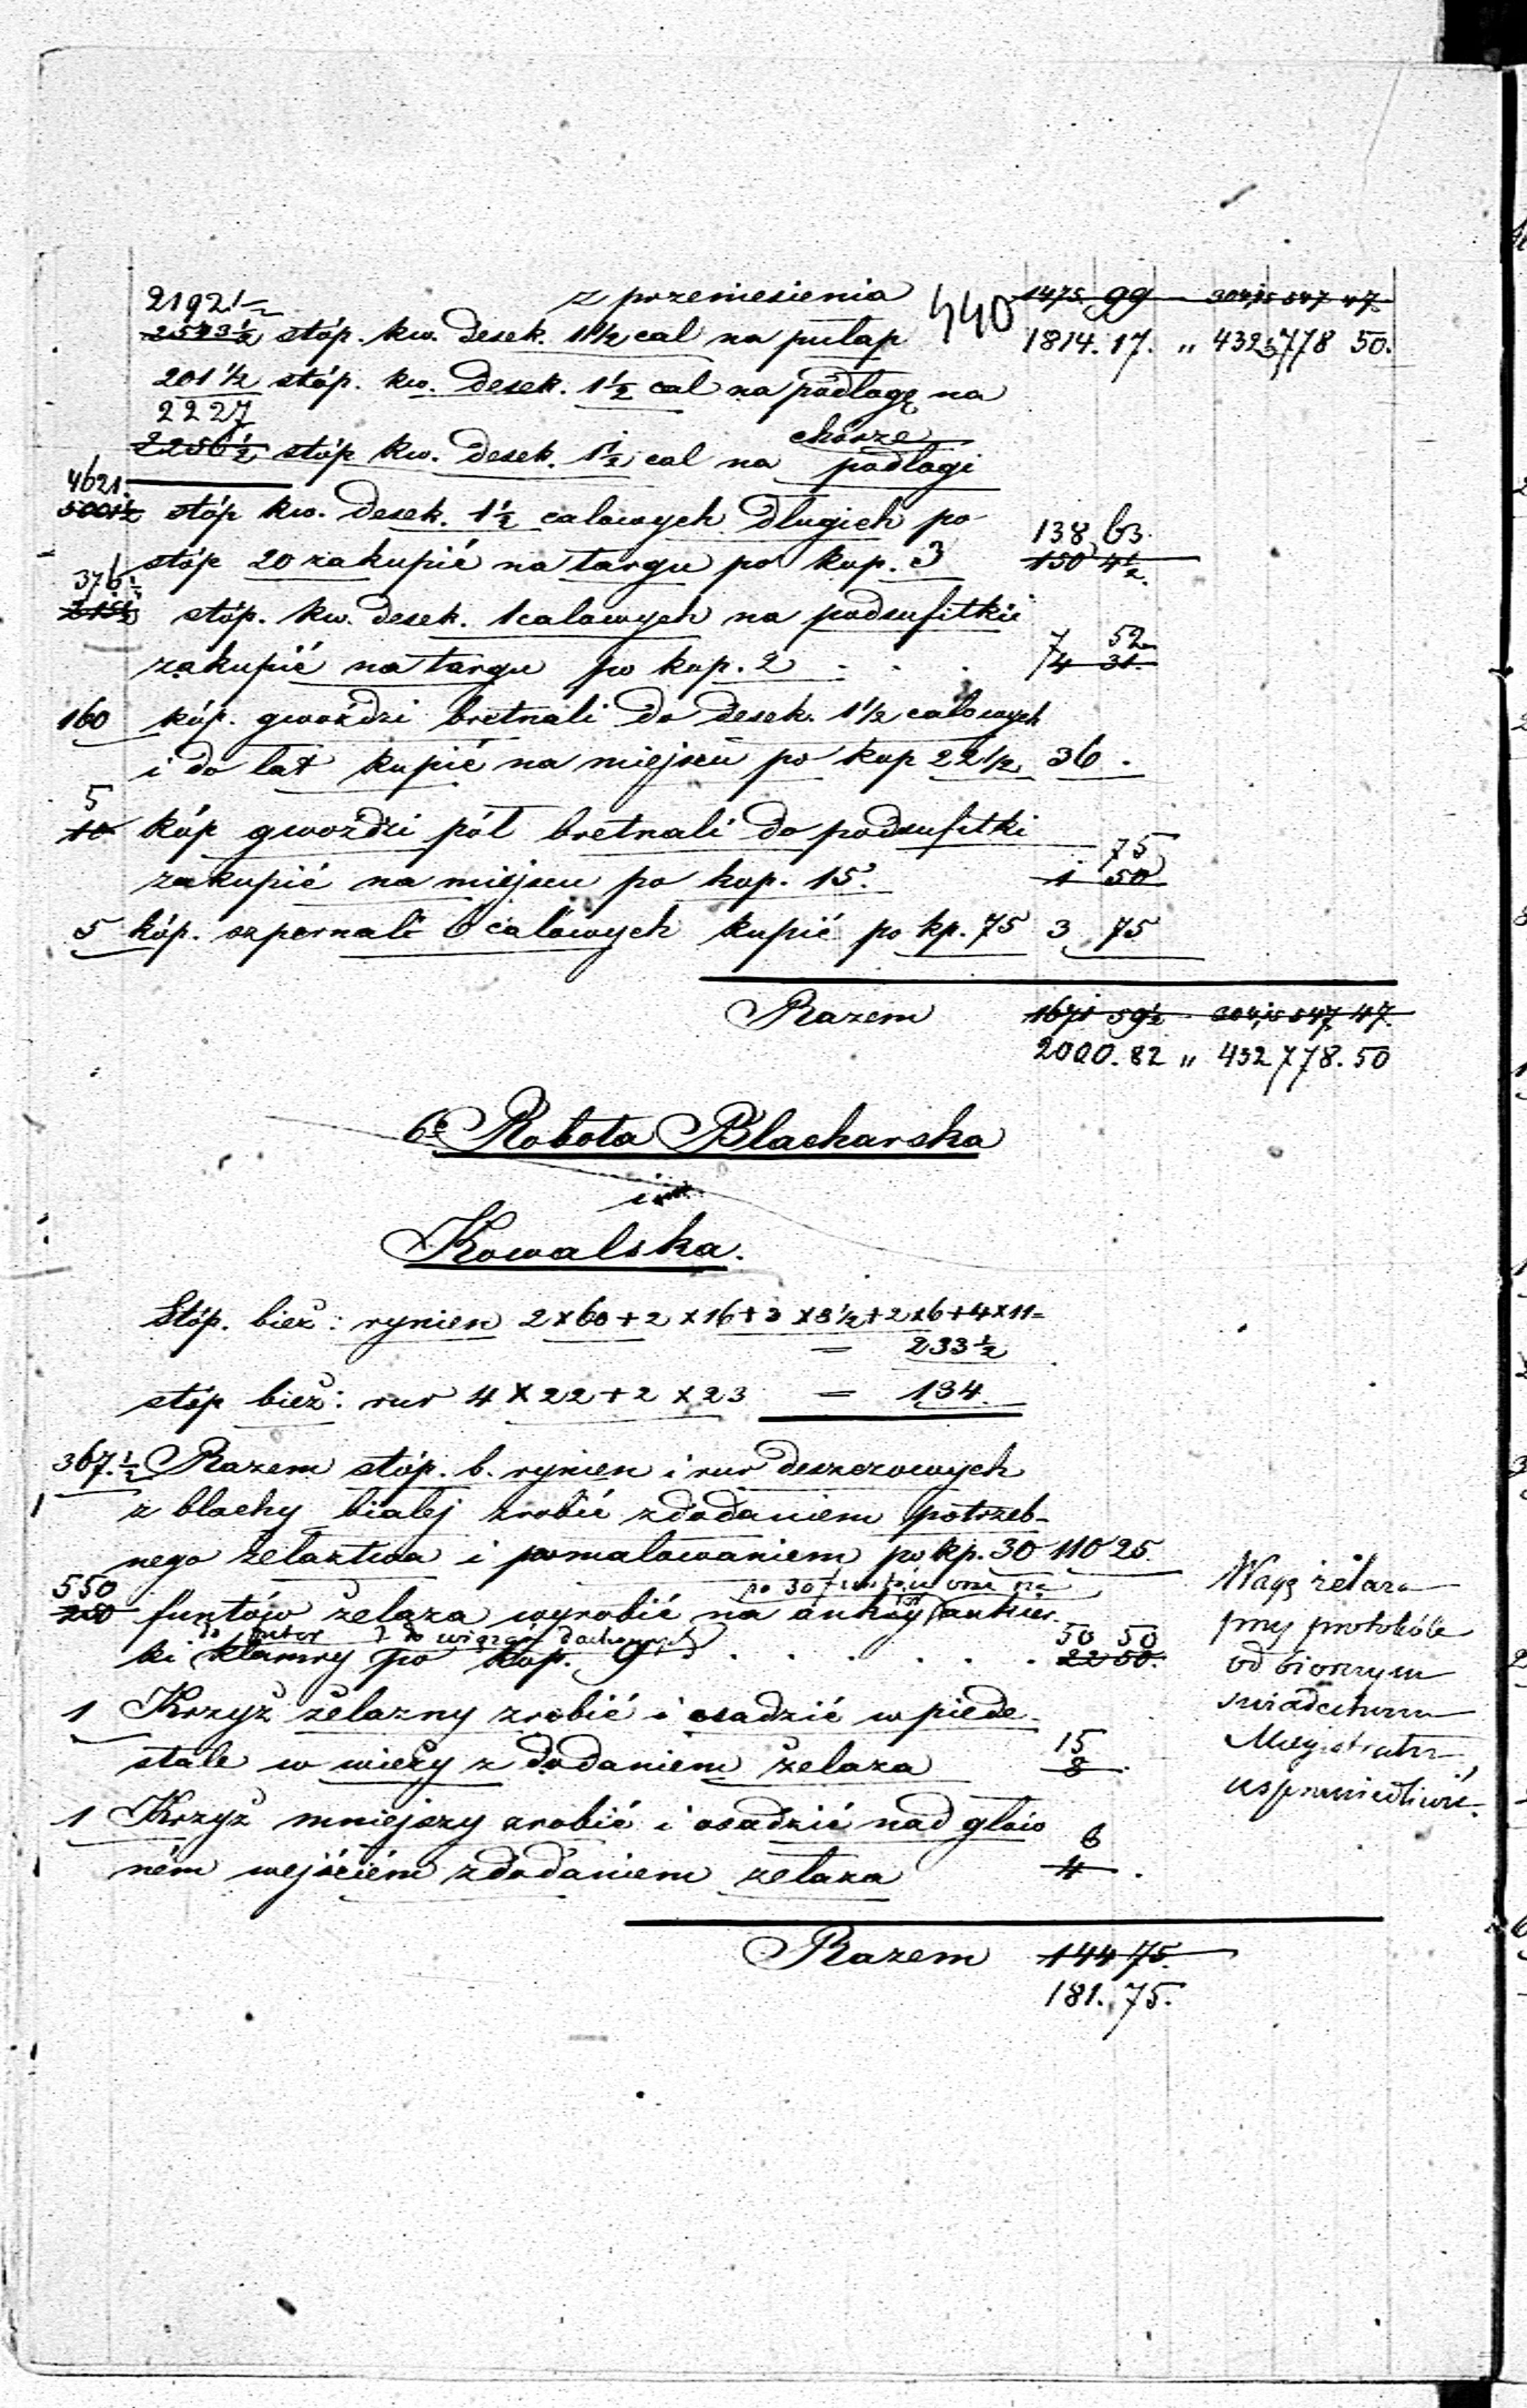 z przeniesienia 440 1475. 99 304,75 547 47.
2192 1/2
2543 1/2 stóp. kw. desek. 1 1/2 cal na pułap 1814. 17. „ 432 778 50.
201 1/2 stóp. kw. desek. 1 1/2 cal na podłogę na chórze
2227
2256 1/2 stóp kw. desek. 1 1/2 cal na podłogi
4621.
5001 1/2 stóp kw. desek. 1 1/2 calowych długich po 138 63.
stóp 20 zakupić na targu po kop. 3 150 4 1/2.
376 1/2
215 1/2 stóp. kw. desek. 1 calowych na podsufitkie
7 52
zakupić na targu po kop. 2 . . . 4 31.
160 kóp. gwoździ bretnali do desek. 1 1/2 calowych
i do łat kupić na miejscu po kop 22 1/2 36 .
5
10 kóp gwoździ pół bretnali do podsufitki
75
zakupić na miejscu po kop. 15. 1 50
5 kóp. szpernali 6 calowych kupić po kp. 75 3 75
Razem 1671 59 1/2 304,75 547, 47.
2000. 82 „ 432 778. 50
6e Robota Blacharska
i
Kowalska.
Stóp. bież: rynien 2 x 60 + 2 x 16 + 3 x 8 1/2 + 2 x 6 + 4 x 11 =
= 233 1/2
stóp bież: rur 4 x 22 + 2 x 23 = 134.
367. 1/2 Razem stóp. b. rynien i rur deszczowych
z blachy białej zrobić z dodaniem potrzeb-
nego żelaztwa i pomalowaniem po kp. 30 110 25.
po 30 funtów
550
250 funtów żelaza wyrobić na ankry i ankier-
do do wiązań dachowych 50 50
ki klamry po kop. 9 . . . . . . 22 50.
1 Krzyż żelazny zrobić i osadzić w piede-
15
stale w wieży z dodaniem żelaza 8 .
1 Krzyż mniejszy zrobić i osadzić nad głów
6
ném wejściém z dodaniem żelaza 4 .
Razem 144 75.
181. 75.
Wagę żelaza
przy protokóle
odbiorczym
świadectwem
Magistratu
usprawiedliwić.